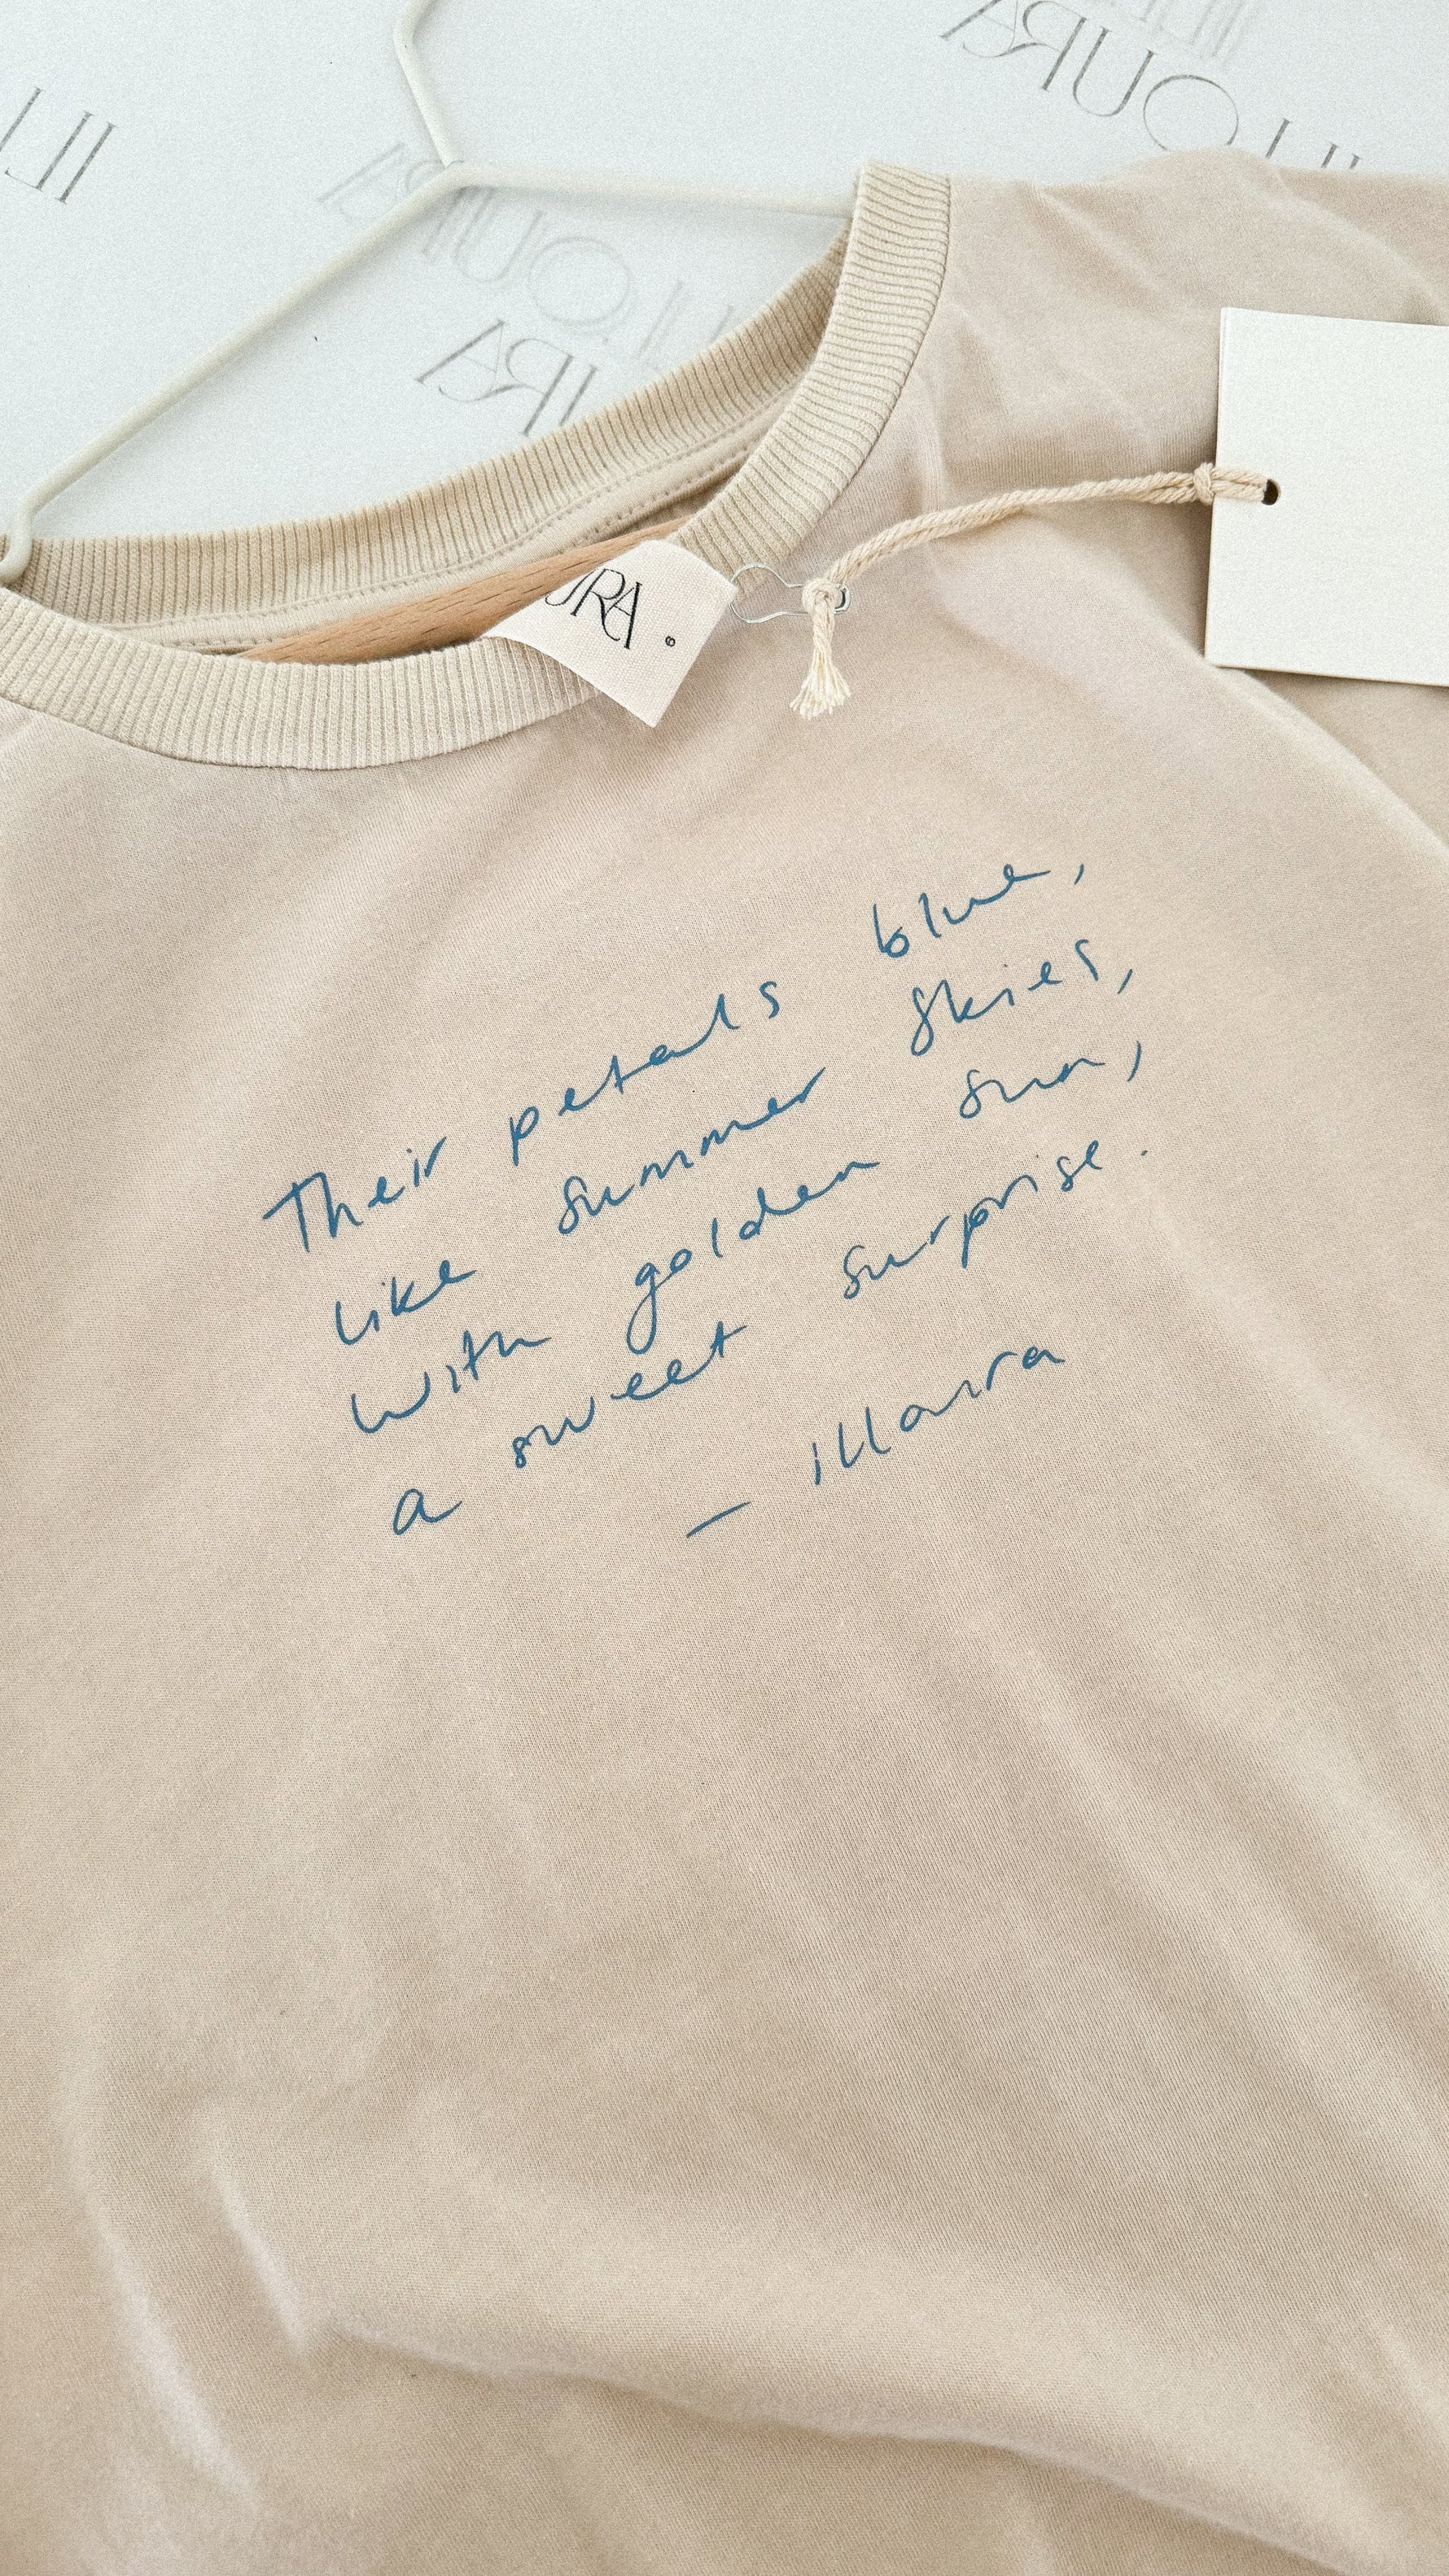 ILL
ILLOURA
ILLOURA
URA
URA 6
Their petals blue,
like summer skies,
with golden sun,
a sweet surprise.
— illoura